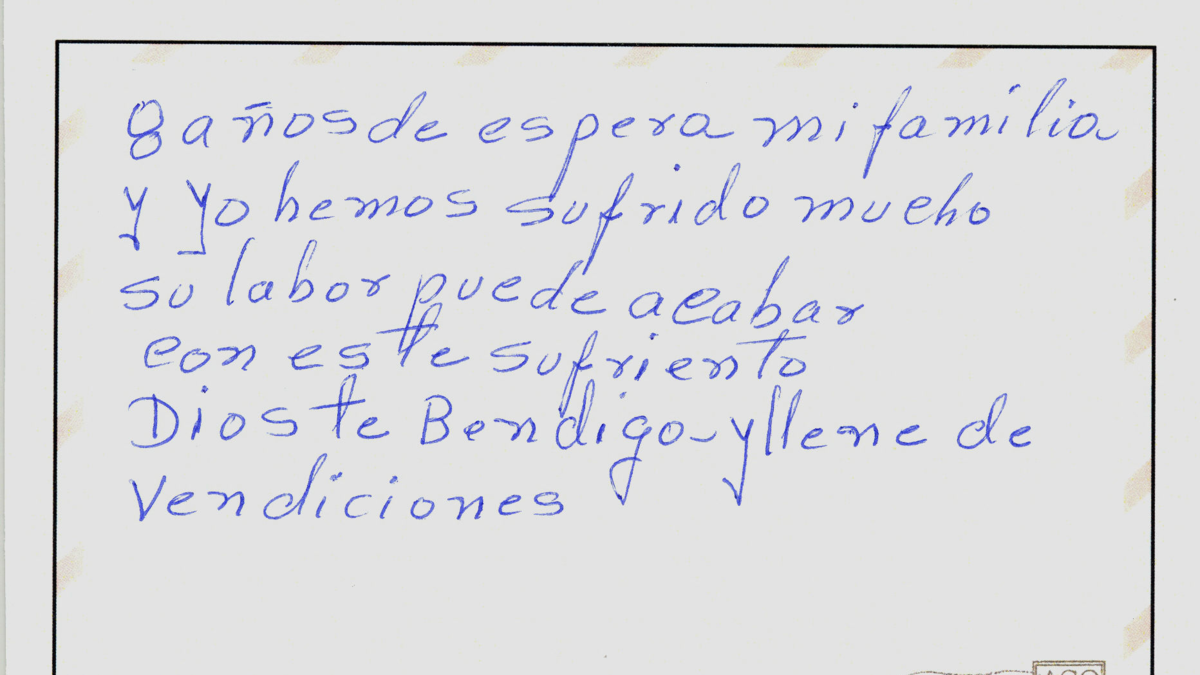 8 años de espera mi familia
y yo hemos sufrido mucho
su labor puede acabar
con este sufriento
Dios te Bendigo y llene de
Vendiciones